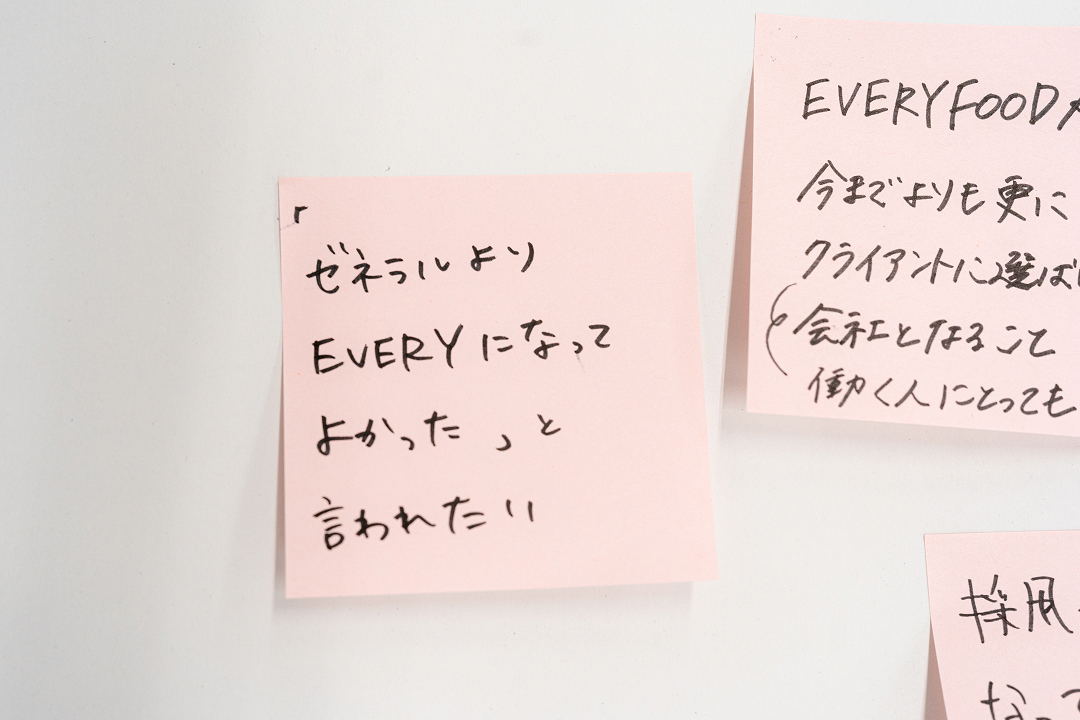 「
ゼネラルより
EVERYになって
よかった」と
言われたい
EVERYFOOD
今までよりも更に
クライアントに選ば
会社となること
働く人にとっても
採用
なって